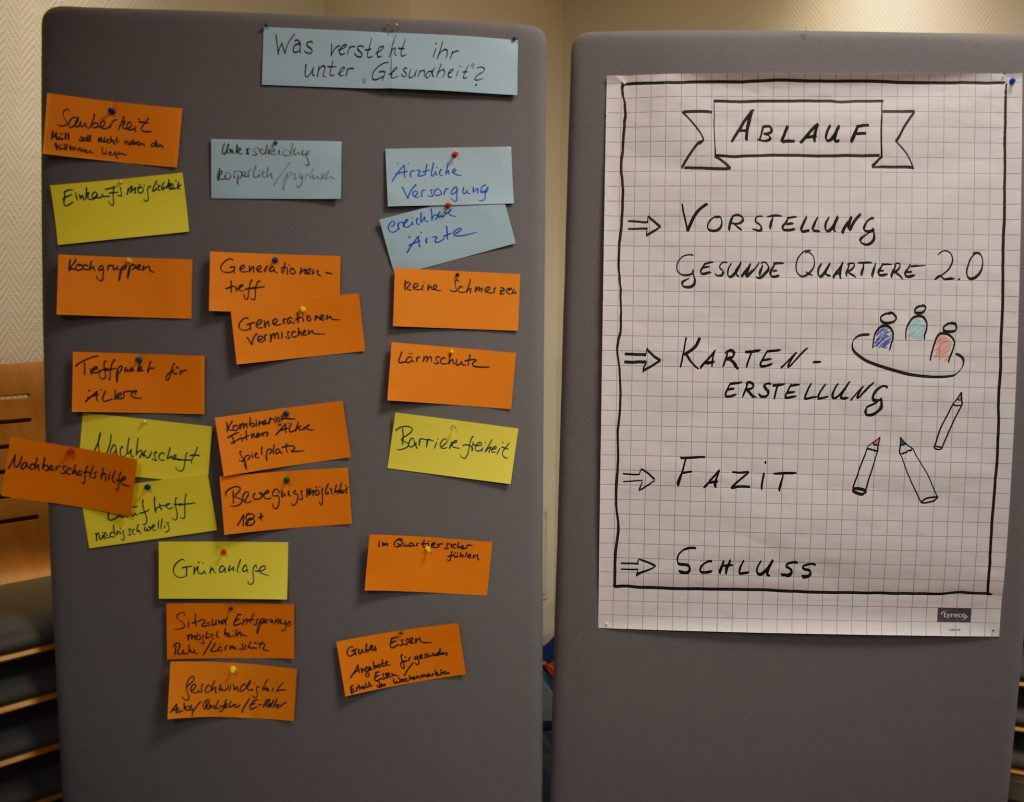 Was versteht ihr
unter „Gesundheit"?
Sauberkeit
Müll soll nicht neben den
Mülltonnen liegen
Einkaufsmöglichkeit
Kochgruppen
Treffpunkt für
ÄLtere
Nachbarschaft
Nachbarschaftshilfe
Lauftreff
niedrigschwellig
Grünanlage
Sitz- und Entspannungs-
möglichkeiten
Ruhe / Lärmschutz
Geschwindigkeit
Autos / / E-Roller
Unterscheidung
körperlich/psychisch
Generationen-
treff
Generationen
vermischen
Kombination
Fitness ÄLtere
Spielplatz
Bewegungsmöglichkeit
18+
Ärztliche
Versorgung
erreichbare
Ärzte
keine Schmerzen
Lärmschutz
Barrierefreiheit
im Quartier sicher
fühlen
Gutes Essen
Angebote für gesundes
Essen /
Erhalt des Wochenmarktes
ABLAUF
⇒ VORSTELLUNG
GESUNDE QUARTIERE 2.0
⇒ KARTEN-
ERSTELLUNG
⇒ FAZIT
⇒ SCHLUSS
Lyreco